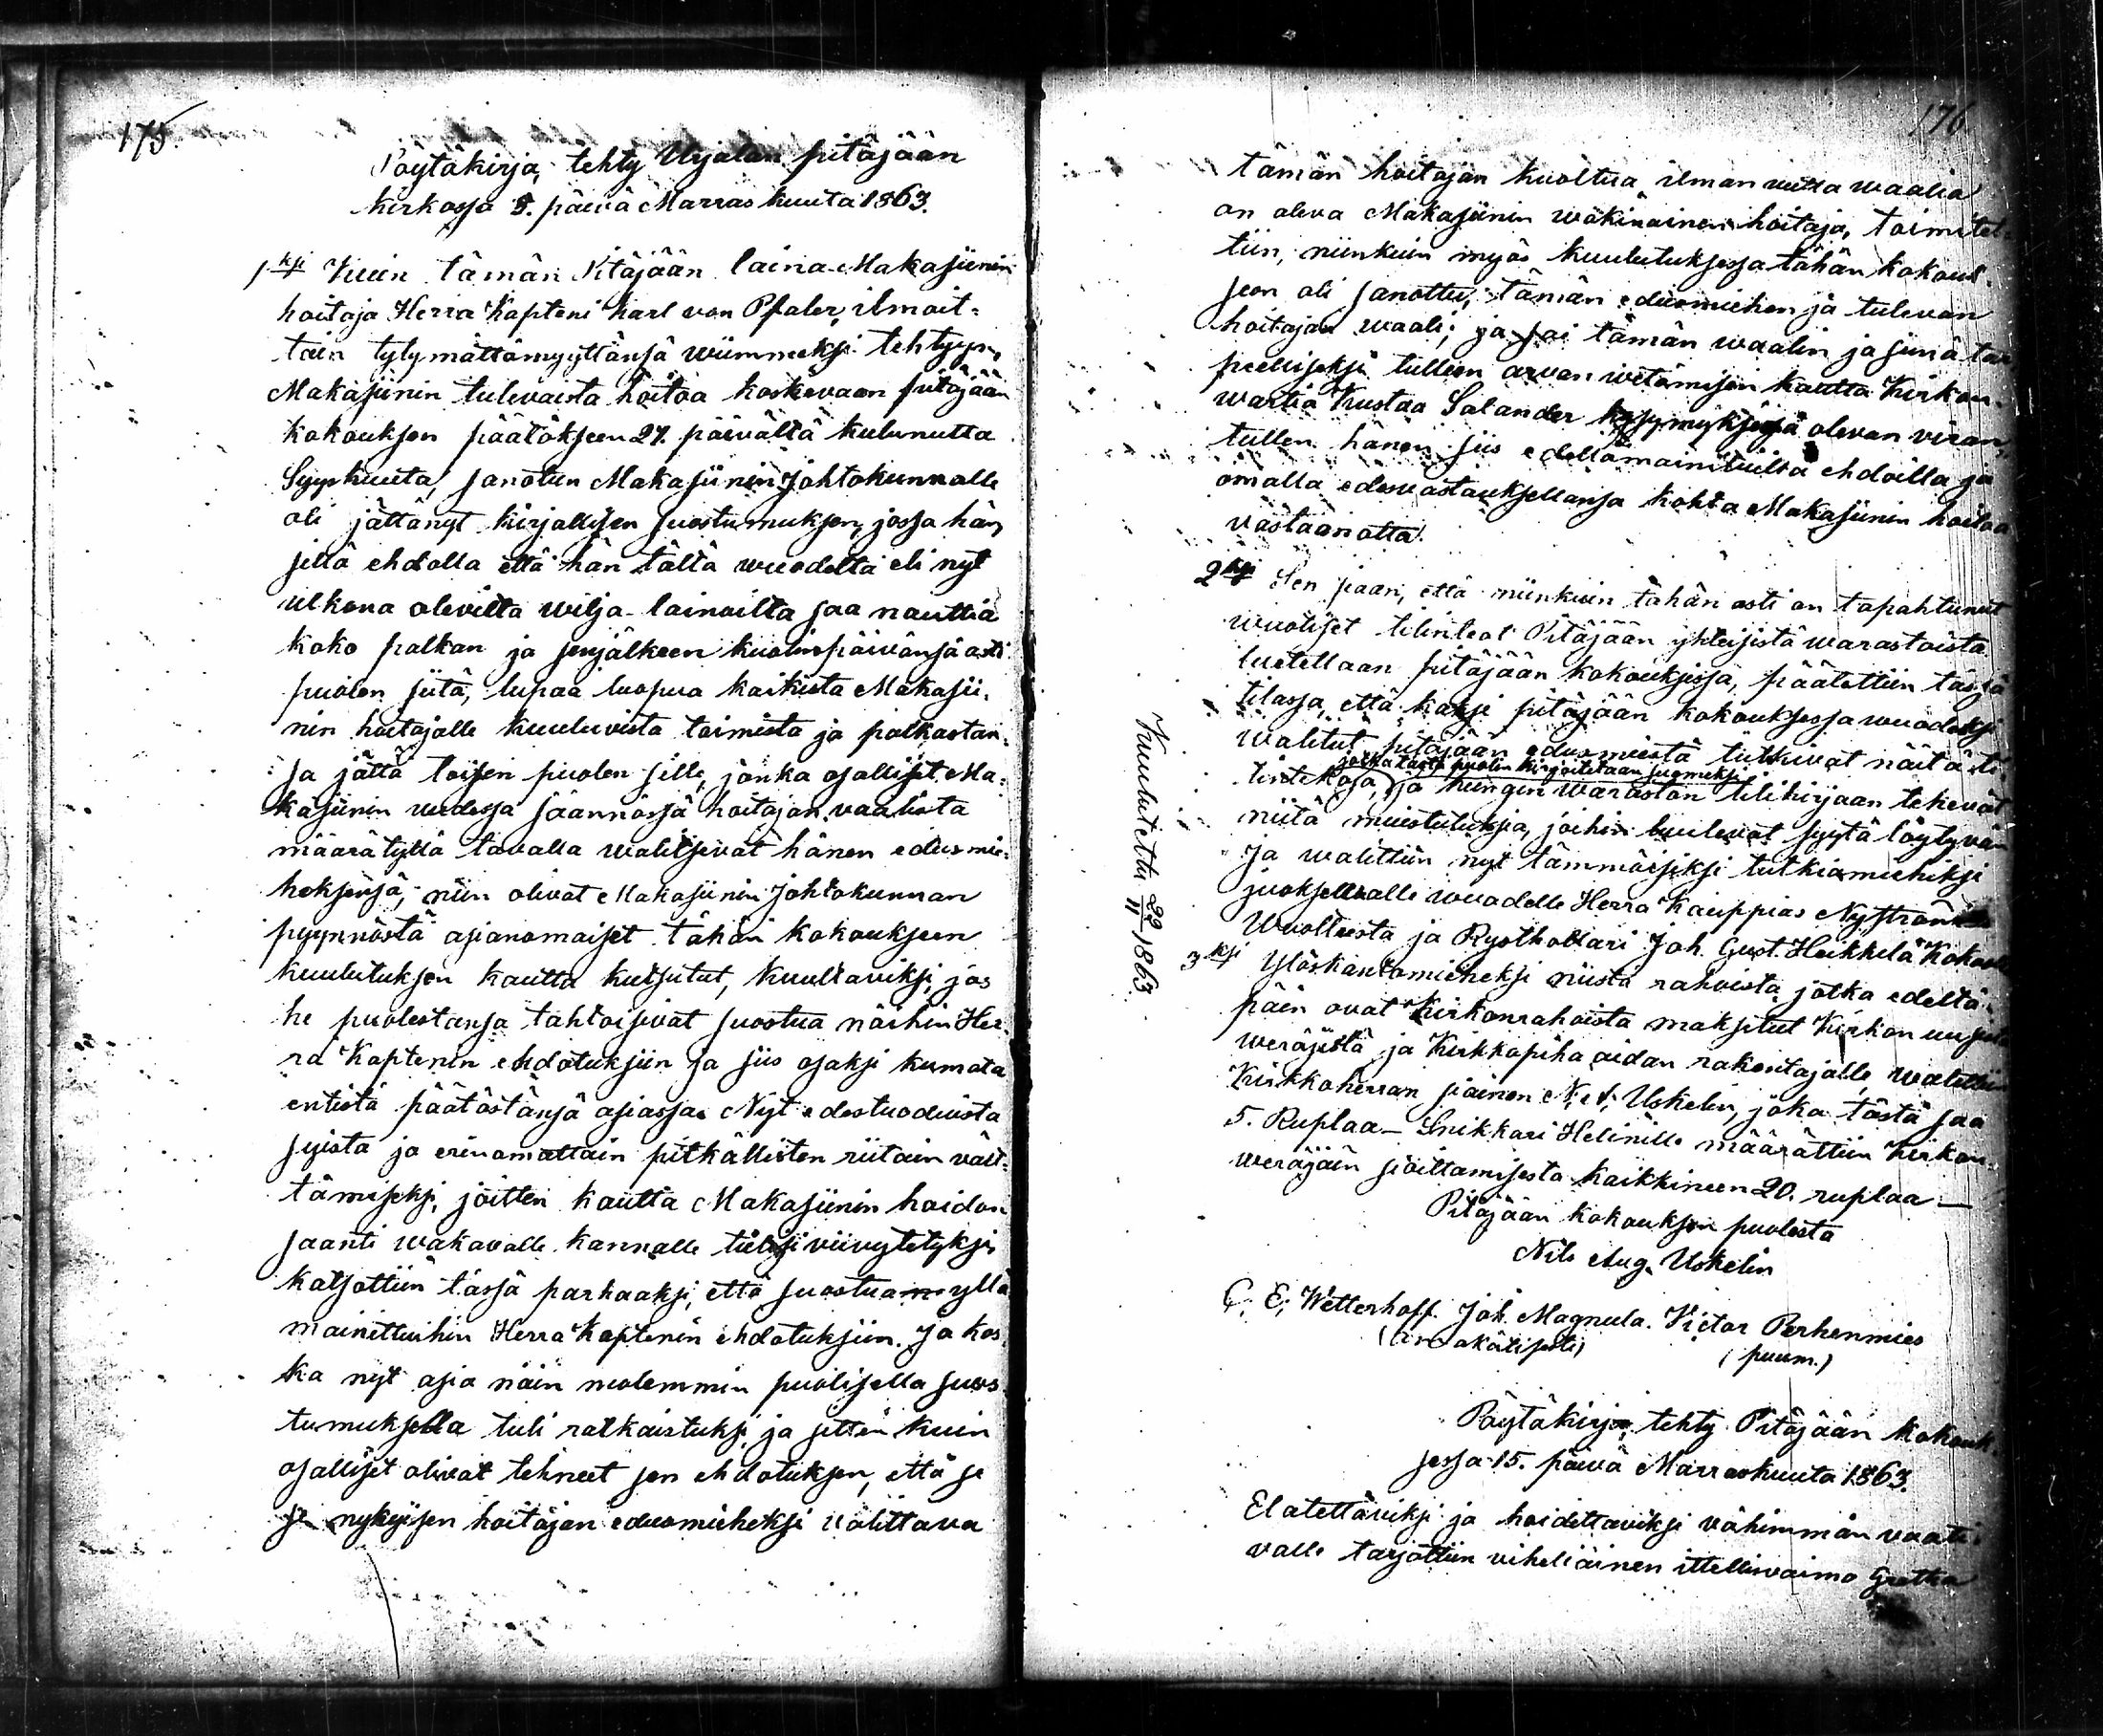 175.
Pöytäkirja, tehty Urjalan pitäjään
kirkossa 8. päivä Marraskuuta 1863.
1ksi Kuin tämän Pitäjään laina-Makasiinin
hoitaja Herra Kapteni Karl von Pfaler, ilmoit-
tain tytymättömyyttänsä wiimmeksi tehtyyn,
Makasiinin tulevaista hoitoa koskevaan pitäjään
kokouksen päätökseen 27. päivältä kulunutta
Syyskuuta, sanotun Makasiinin Johtokunnalle
oli jättänyt kirjallisen suostumuksen, jossa hän,
sillä ehdolla että hän tältä wuodelta eli nyt
ulkona olevilta wilja-lainoilta saa nauttia
koko palkan ja senjälkeen kuolinpäivänsä asti
puolen siitä, lupaa luopua kaikista Makasii-
nin hoitajalle kuuluvista toimista ja palkastan-
sa jättä toisen puolen sille, jonka osalliset Ma-
kasiinin uudessa säännössä hoitajan vaalista
määrätyllä tavalla walitsevat hänen edusmie-
heksensä; niin olivat Makasiinin Johtokunnan
pyynnöstä asianomaiset tähän kokoukseen
kuulutuksen kautta kutsutut, kuultaviksi, jos
he puolestansa tahtoisivat suostua näihin Her-
ra Kaptenin ehdotuksiin ja siis osaksi kumota
entistä päätöstänsä asiassa. Nyt edestuoduista
syistä ja erinomattain pitkällisten riitain vält-
tämiseksi, joitten kautta Makasiinin hoidon
saanti wakavalle kannalle tulisi viivytetyksi,
katsottiin tässä parhaaksi, että suostua yllä
mainittuihin Herra Kaptenin ehdotuksiin. Ja kos-
ka nyt asia näin molemmin puolisella suos-
tumuksella tuli ratkaistuksi ja sitten kuin
osalliset olivat tehneet sen ehdotuksen, että se
se nykyisen hoitajan edusmieheksi valittava
176.
tämän hoitajan kuoltua, ilman uutta waalia
on oleva Makasiinin wakinainen hoitaja, toimitet-
tiin, niinkuin myös kuulutuksessa tähän kokouk-
seen oli sanottu, tämän edusmiehen ja tulevan
hoitajan waali; ja sai tämän waalin ja siinä tar
peelliseksi tulleen arvan wetämisen kautta Kirkon-
wartia Kustaa Salander kysymyksessä olevan viran,
tullen hänen siis edellämainituilla ehdoilla ja
omalla edesvastauksellansa kohta Makasiinin hoitoa
vastaanottaa.
2ksi Sen siaan, että niinkuin tähän asti on tapahtunut
wuotiset tilinteot Pitäjään yhteisistä warastoista
luetellaan pitäjään kokouksissa, päätettiin tässä
tilassa että kaksi pitäjään kokouksessa wuodeksi
walitut pitäjään edusmiestä tutkivat näitä ti-
jotka tästä puolin kirjoitetaan suomeksi
lintekoja, ja kungin waraston tilikirjaan tekevät
niitä muistutuksia, joihin luulevat syytä löytyvän
Ja walittiin nyt tämmöisiksi tutkiamiehiksi
juoksevalle wuodelle Herra Kauppias Nyström
Wuolteesta ja Rysthollari Joh. Gust. Heikkilä
3ksi Ylöskantomieheksi niistä rahoista, jotka edeltä-
päin ovat Kirkonrahoista maksetut Kirkon
weräjistä ja Kirkkopiha aidan rakentajalle walittiin
Kirkkoherran siainen N. A. Uskelin, joka tästä saa
5. Ruplaa — Snikkari Helinille määrättiin Kirkon-
weräjäin sioittamisesta kaikkineen 20. ruplaa —
Pitäjään kokouksen puolesta
Nils Aug. Uskelin
C. E. Wetterhoff. Joh. Magnula. Victor Perhenmies
(omakätisesti) (puum.)
Kuulutettu 22/11 1863.
Pöytäkirja, tehty Pitäjään kokouk-
sessa 15. päivä Marraskuuta 1863.
Elatettäviksi ja hoidettaviksi vähimmän vaati-
valle tarjottiin viheliäinen ittellinvaimo Gretha